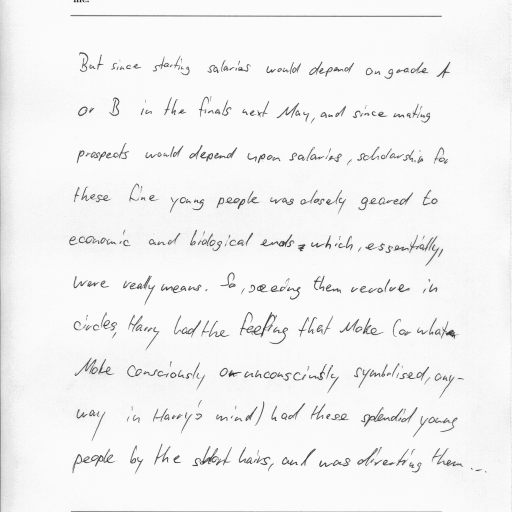 But since starting salaries would depend on grade A
or B in the finals next May, and since mating
prospects would depend upon salaries, scholarship for
these fine young people was closely geared to
economic and biological ends, which, essentially,
were really means. So, seeing them revolve in
circles, Harry had the feeling that Make (or what
Make consciously or unconsciously symbolised, any-
way in Harry's mind) had these splendid young
people by the short hairs, and was diverting them...